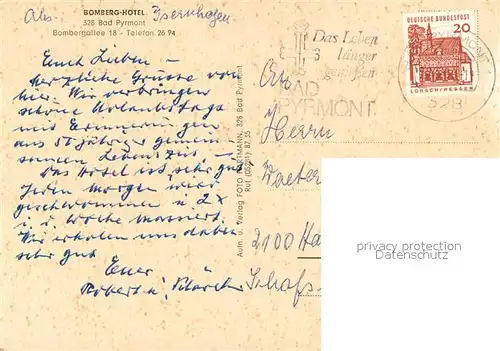 BOMBERG-HOTEL
328 Bad Pyrmont
Bombergallee 18 - Telefon 26 94
Abs. Isernhagen
Euch Lieben -
herzliche Grüsse von
hier. Wir verbringen
schöne Urlaubstage
mit Erinnerungen
aus 50 jähriger gemein-
samen Lebenszeit -
Das Hotel ist sehr gut
Jeden Morgen wird
geschwommen u. 2 x
i. d. Woche massiert.
Wir erholen uns dabei
sehr gut
Euer
Robert u.
Aufn. u. Verlag FOTO HARTMANN, 328 Bad Pyrmont
Ruf (05281) 87 35
Das Leben
3 länger
genießen
BAD
PYRMONT
328
DEUTSCHE BUNDESPOST
20
LORSCH/HESSEN
An
Herrn
Walter
2100 Ha
Schafs
privacy protection
Datenschutz